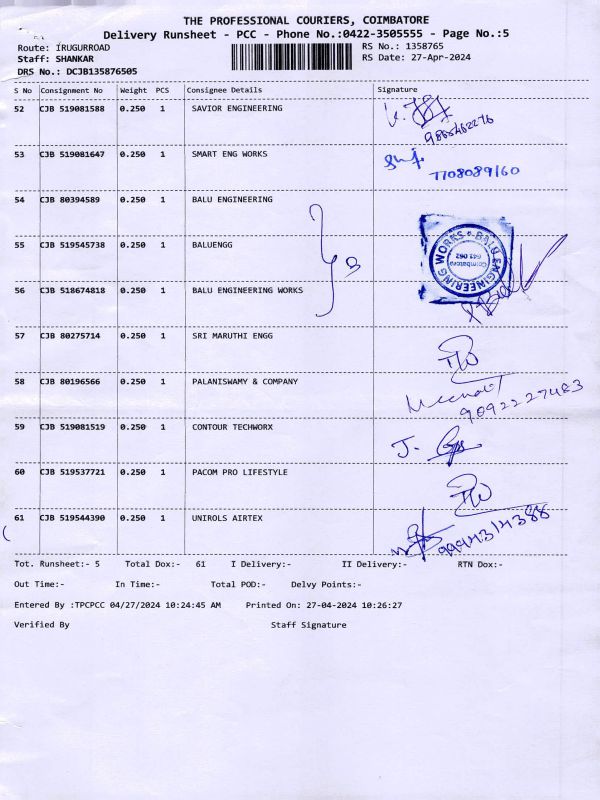 THE PROFESSIONAL COURIERS, COIMBATORE
Delivery Runsheet - PCC - Phone No.:0422-3505555 - Page No.:5
Route: IRUGURROAD
RS No.: 1358765
Staff: SHANKAR
RS Date: 27-Apr-2024
DRS No.: DCJB135876505
S No Consignment No Weight PCS Consignee Details Signature
52 CJB 519081588 0.250 1 SAVIOR ENGINEERING
9865462276
53 CJB 519081647 0.250 1 SMART ENG WORKS
7708089160
54 CJB 80394589 0.250 1 BALU ENGINEERING
55 CJB 519545738 0.250 1 BALUENGG
BALU ENGINEERING WORKS
Coimbatore
641 062
56 CJB 518674818 0.250 1 BALU ENGINEERING WORKS
57 CJB 80275714 0.250 1 SRI MARUTHI ENGG
58 CJB 80196566 0.250 1 PALANISWAMY & COMPANY
9092227483
59 CJB 519081519 0.250 1 CONTOUR TECHWORX
J.
60 CJB 519537721 0.250 1 PACOM PRO LIFESTYLE
61 CJB 519544390 0.250 1 UNIROLS AIRTEX
9994314388
Tot. Runsheet:- 5 Total Dox:- 61 I Delivery:- II Delivery:- RTN Dox:-
Out Time:- In Time:- Total POD:- Delvy Points:-
Entered By :TPCPCC 04/27/2024 10:24:45 AM Printed On: 27-04-2024 10:26:27
Verified By Staff Signature